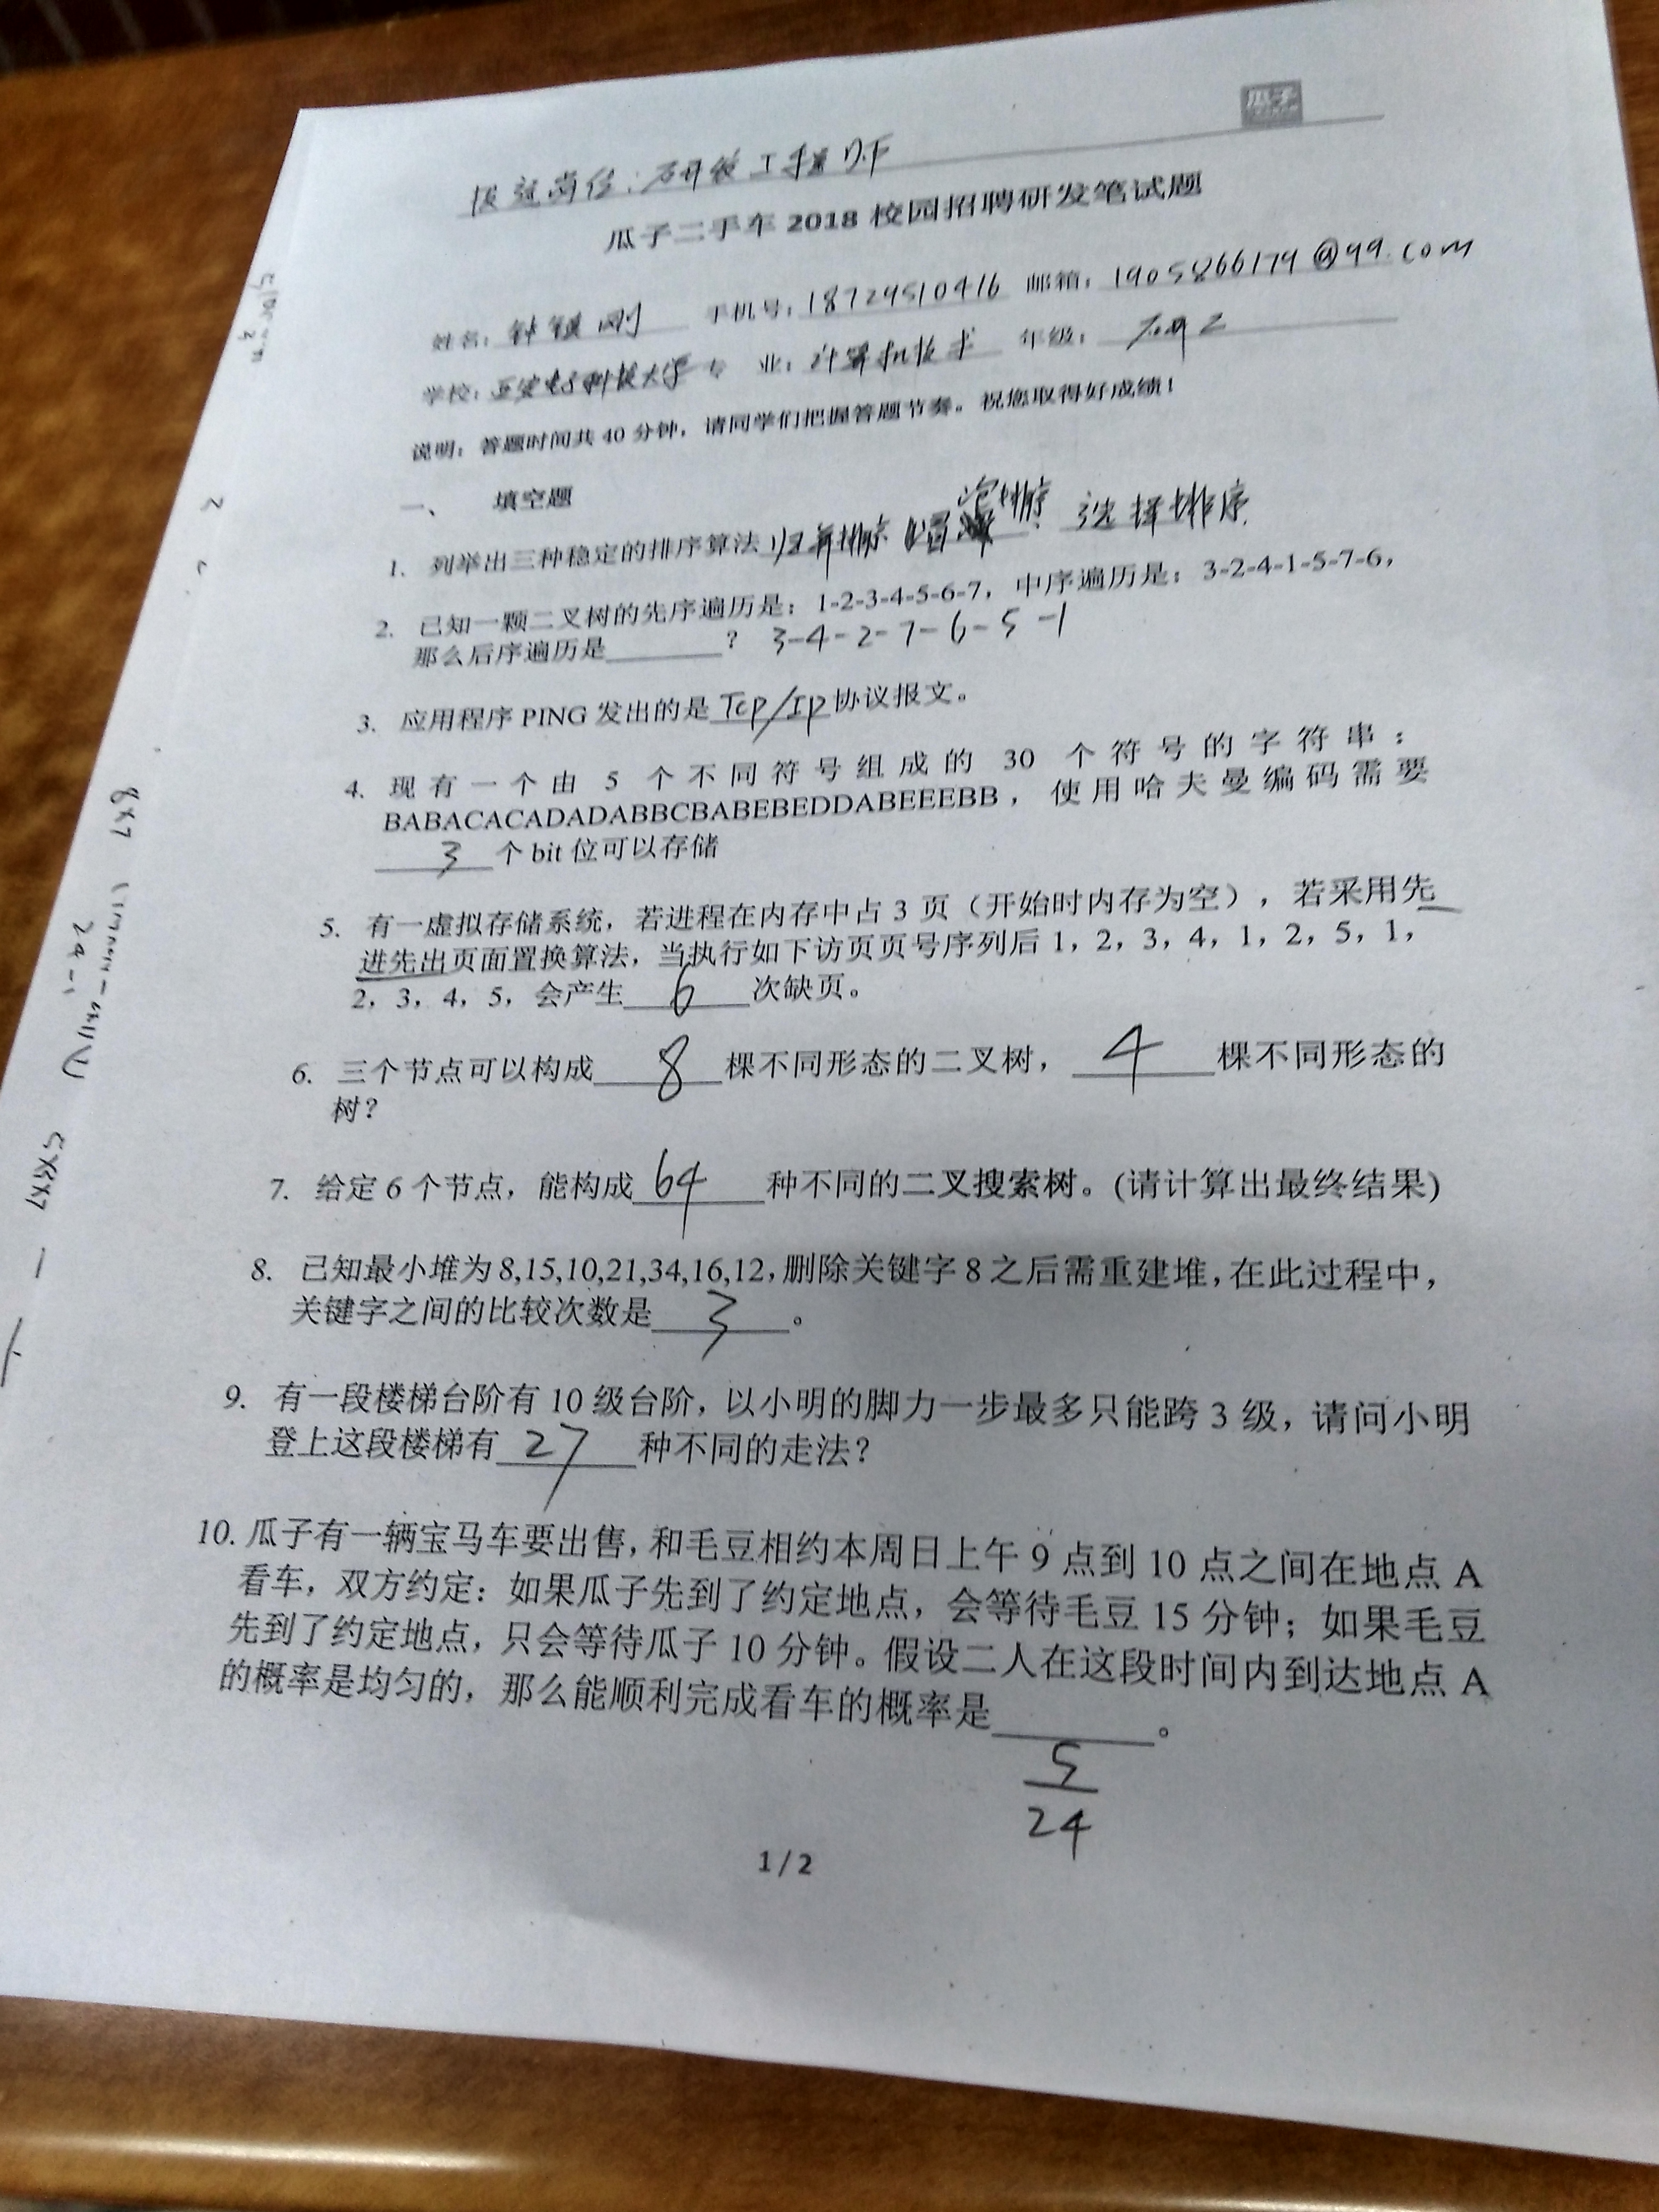 瓜子
投递岗位：研发工程师
瓜子二手车 2018 校园招聘研发笔试题
姓名： 钟 刚 手机号：18729510416 邮箱：1905866179@qq.com
学校：西安电子科技大学 专 业：计算机技术 年级：研二
说明：答题时间共 40 分钟，请同学们把握答题节奏。祝您取得好成绩！
一、 填空题
1. 列举出三种稳定的排序算法 归并排序 冒泡排序 选择排序
2. 已知一颗二叉树的先序遍历是：1-2-3-4-5-6-7，中序遍历是：3-2-4-1-5-7-6，
那么后序遍历是________？ 3-4-2-7-6-5-1
3. 应用程序 PING 发出的是 Tcp/Ip 协议报文。
4. 现有一个由 5 个不同符号组成的 30 个符号的字符串：
BABACACADADABBCBABEBEDDABEEEBB，使用哈夫曼编码需要
3 个 bit 位可以存储
5. 有一虚拟存储系统，若进程在内存中占 3 页（开始时内存为空），若采用先
进先出页面置换算法，当执行如下访页页号序列后 1，2，3，4，1，2，5，1，
2，3，4，5，会产生 6 次缺页。
6. 三个节点可以构成 8 棵不同形态的二叉树， 4 棵不同形态的
树？
7. 给定 6 个节点，能构成 64 种不同的二叉搜索树。(请计算出最终结果)
8. 已知最小堆为 8,15,10,21,34,16,12,删除关键字 8 之后需重建堆,在此过程中，
关键字之间的比较次数是 3 。
9. 有一段楼梯台阶有 10 级台阶，以小明的脚力一步最多只能跨 3 级，请问小明
登上这段楼梯有 27 种不同的走法？
10. 瓜子有一辆宝马车要出售，和毛豆相约本周日上午 9 点到 10 点之间在地点 A
看车，双方约定：如果瓜子先到了约定地点，会等待毛豆 15 分钟；如果毛豆
先到了约定地点，只会等待瓜子 10 分钟。假设二人在这段时间内到达地点 A
的概率是均匀的，那么能顺利完成看车的概率是________。
5
24
1 / 2